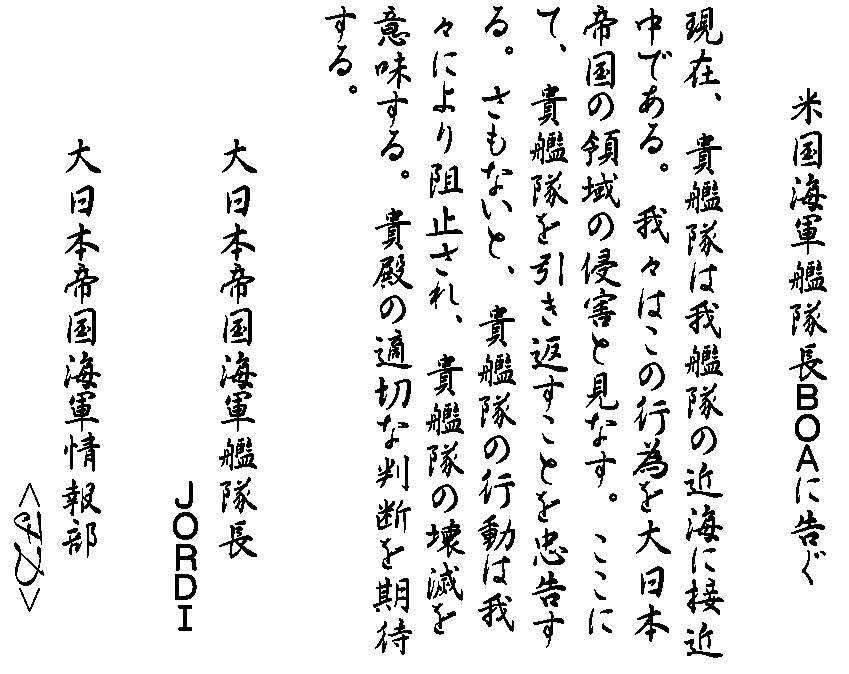 米国海軍艦隊長BOAに告ぐ
現在、貴艦隊は我艦隊の近海に接近
中である。我々はこの行為を大日本
帝国の領域の侵害と見なす。ここに
て、貴艦隊を引き返すことを忠告す
る。さもないと、貴艦隊の行動は我
々により阻止され、貴艦隊の壊滅を
意味する。貴殿の適切な判断を期待
する。
大日本帝国海軍艦隊長
JORDI
大日本帝国海軍情報部